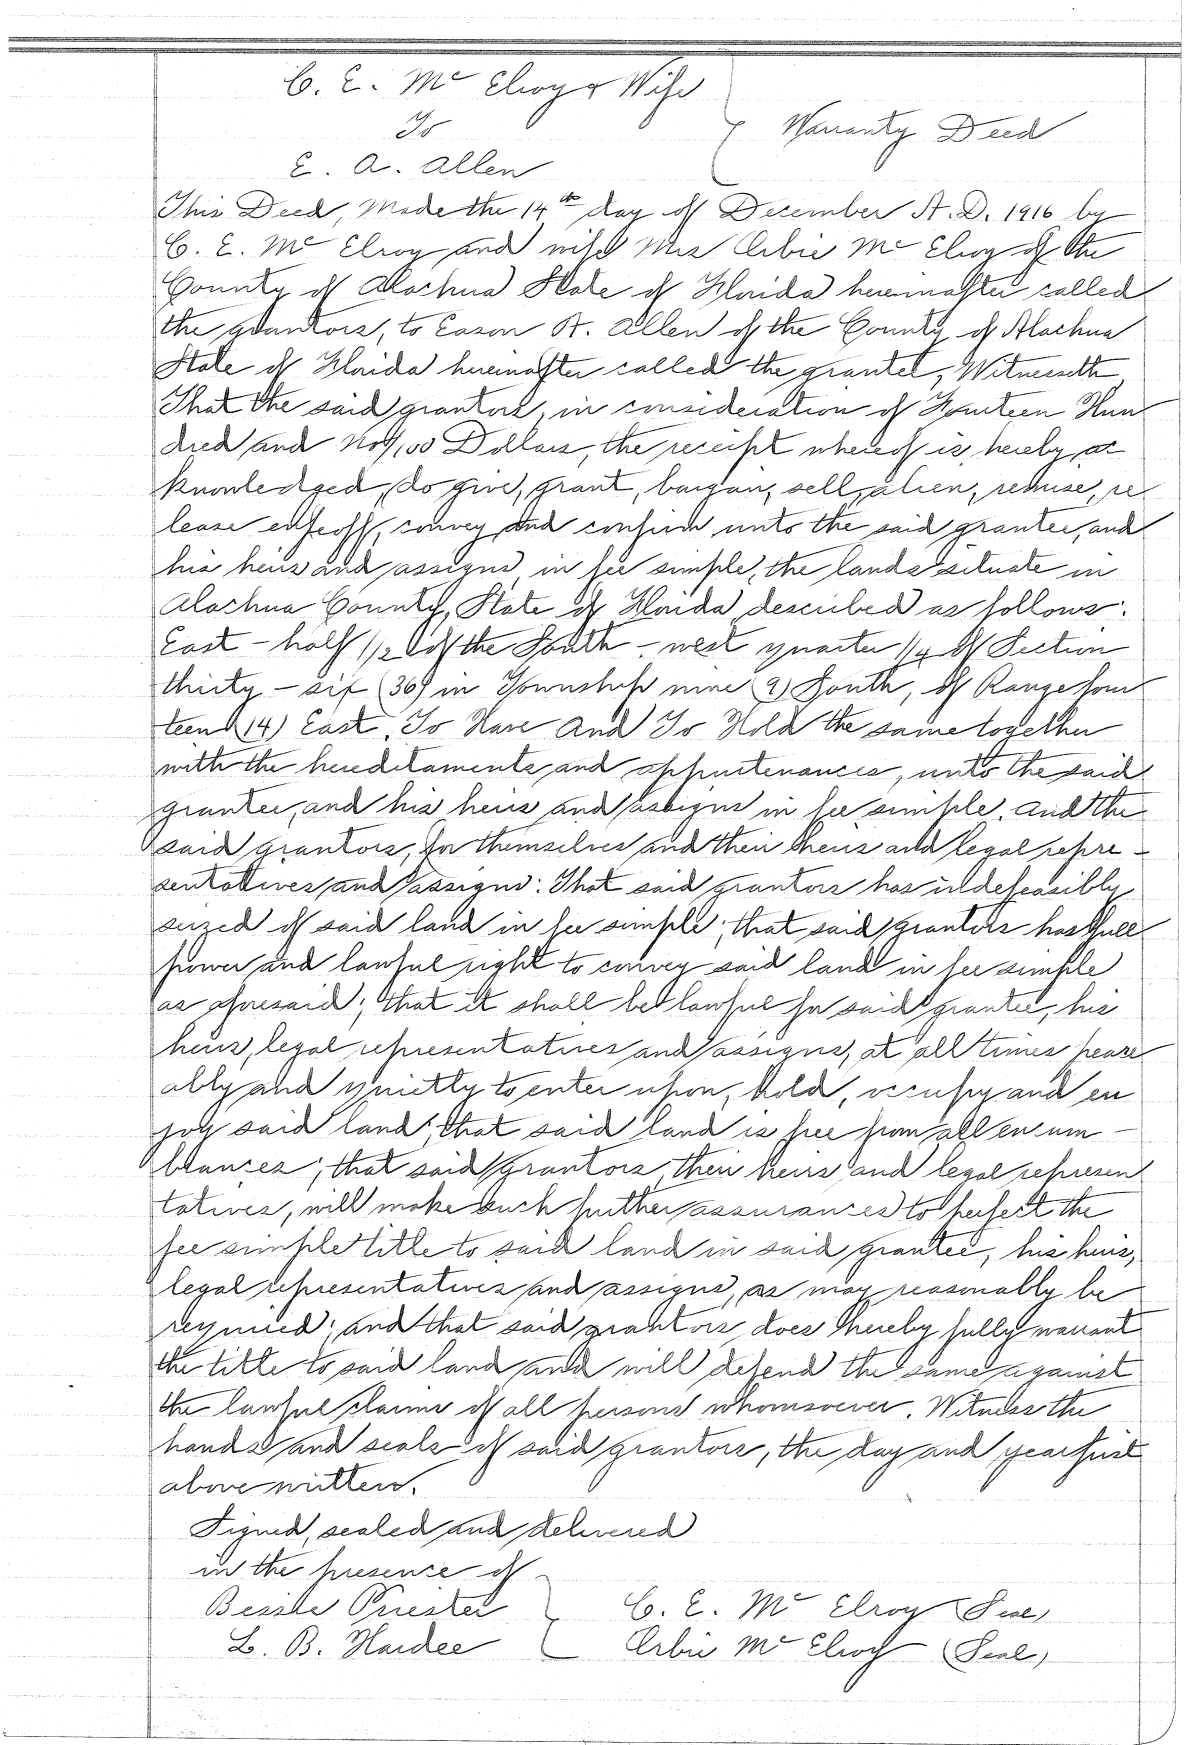 C. E. Mc Elroy & Wife
To
Warranty Deed
E. A. Allen
This Deed, Made the 14th day of December A. D. 1916 by
C. E. Mc Elroy and wife Mrs Orbie Mc Elroy of the
County of Alachua State of Florida hereinafter called
the grantors, to Eason A. Allen of the County of Alachua
State of Florida hereinafter called the grantee, Witnesseth
That the said grantors, in consideration of Fourteen Hun
dred and no/100 Dollars, the receipt whereof is hereby ac
knowledged, do give, grant, bargain, sell, alien, remise, re
lease enfeoff, convey and confirm unto the said grantee, and
his heirs and assigns in fee simple, the lands situate in
Alachua County, State of Florida described as follows:
East - half 1/2 of the South - west quarter 1/4 of Section
thirty - six (36) in Township nine (9) South, of Range four
teen (14) East. To Have And To Hold the same together
with the hereditaments and appurtenances, unto the said
grantee, and his heirs and assigns in fee simple. And the
said grantors, for themselves and their heirs and legal repre -
sentatives and assigns: That said grantors has indefeasibly
seized of said land in fee simple; that said grantors has full
power and lawful right to convey said land in fee simple
as aforesaid; that it shall be lawful for said grantee, his
heirs, legal representatives and assigns, at all times peace
ably and quietly to enter upon, hold, occupy and en
joy said land; that said land is free from all encum -
brances; that said grantors, their heirs and legal represen
tatives, will make such further assurances to perfect the
fee simple title to said land in said grantee, his heirs,
legal representatives and assigns, as may reasonably be
required; and that said grantors does hereby fully warrant
the title to said land and will defend the same against
the lawful claims of all persons whomsoever. Witness the
hands and seals of said grantors, the day and year first
above written.
Signed, sealed and delivered
in the presence of
Bessie Priester C. E. Mc Elroy (Seal)
L. B. Hardee Orbie Mc Elroy (Seal)